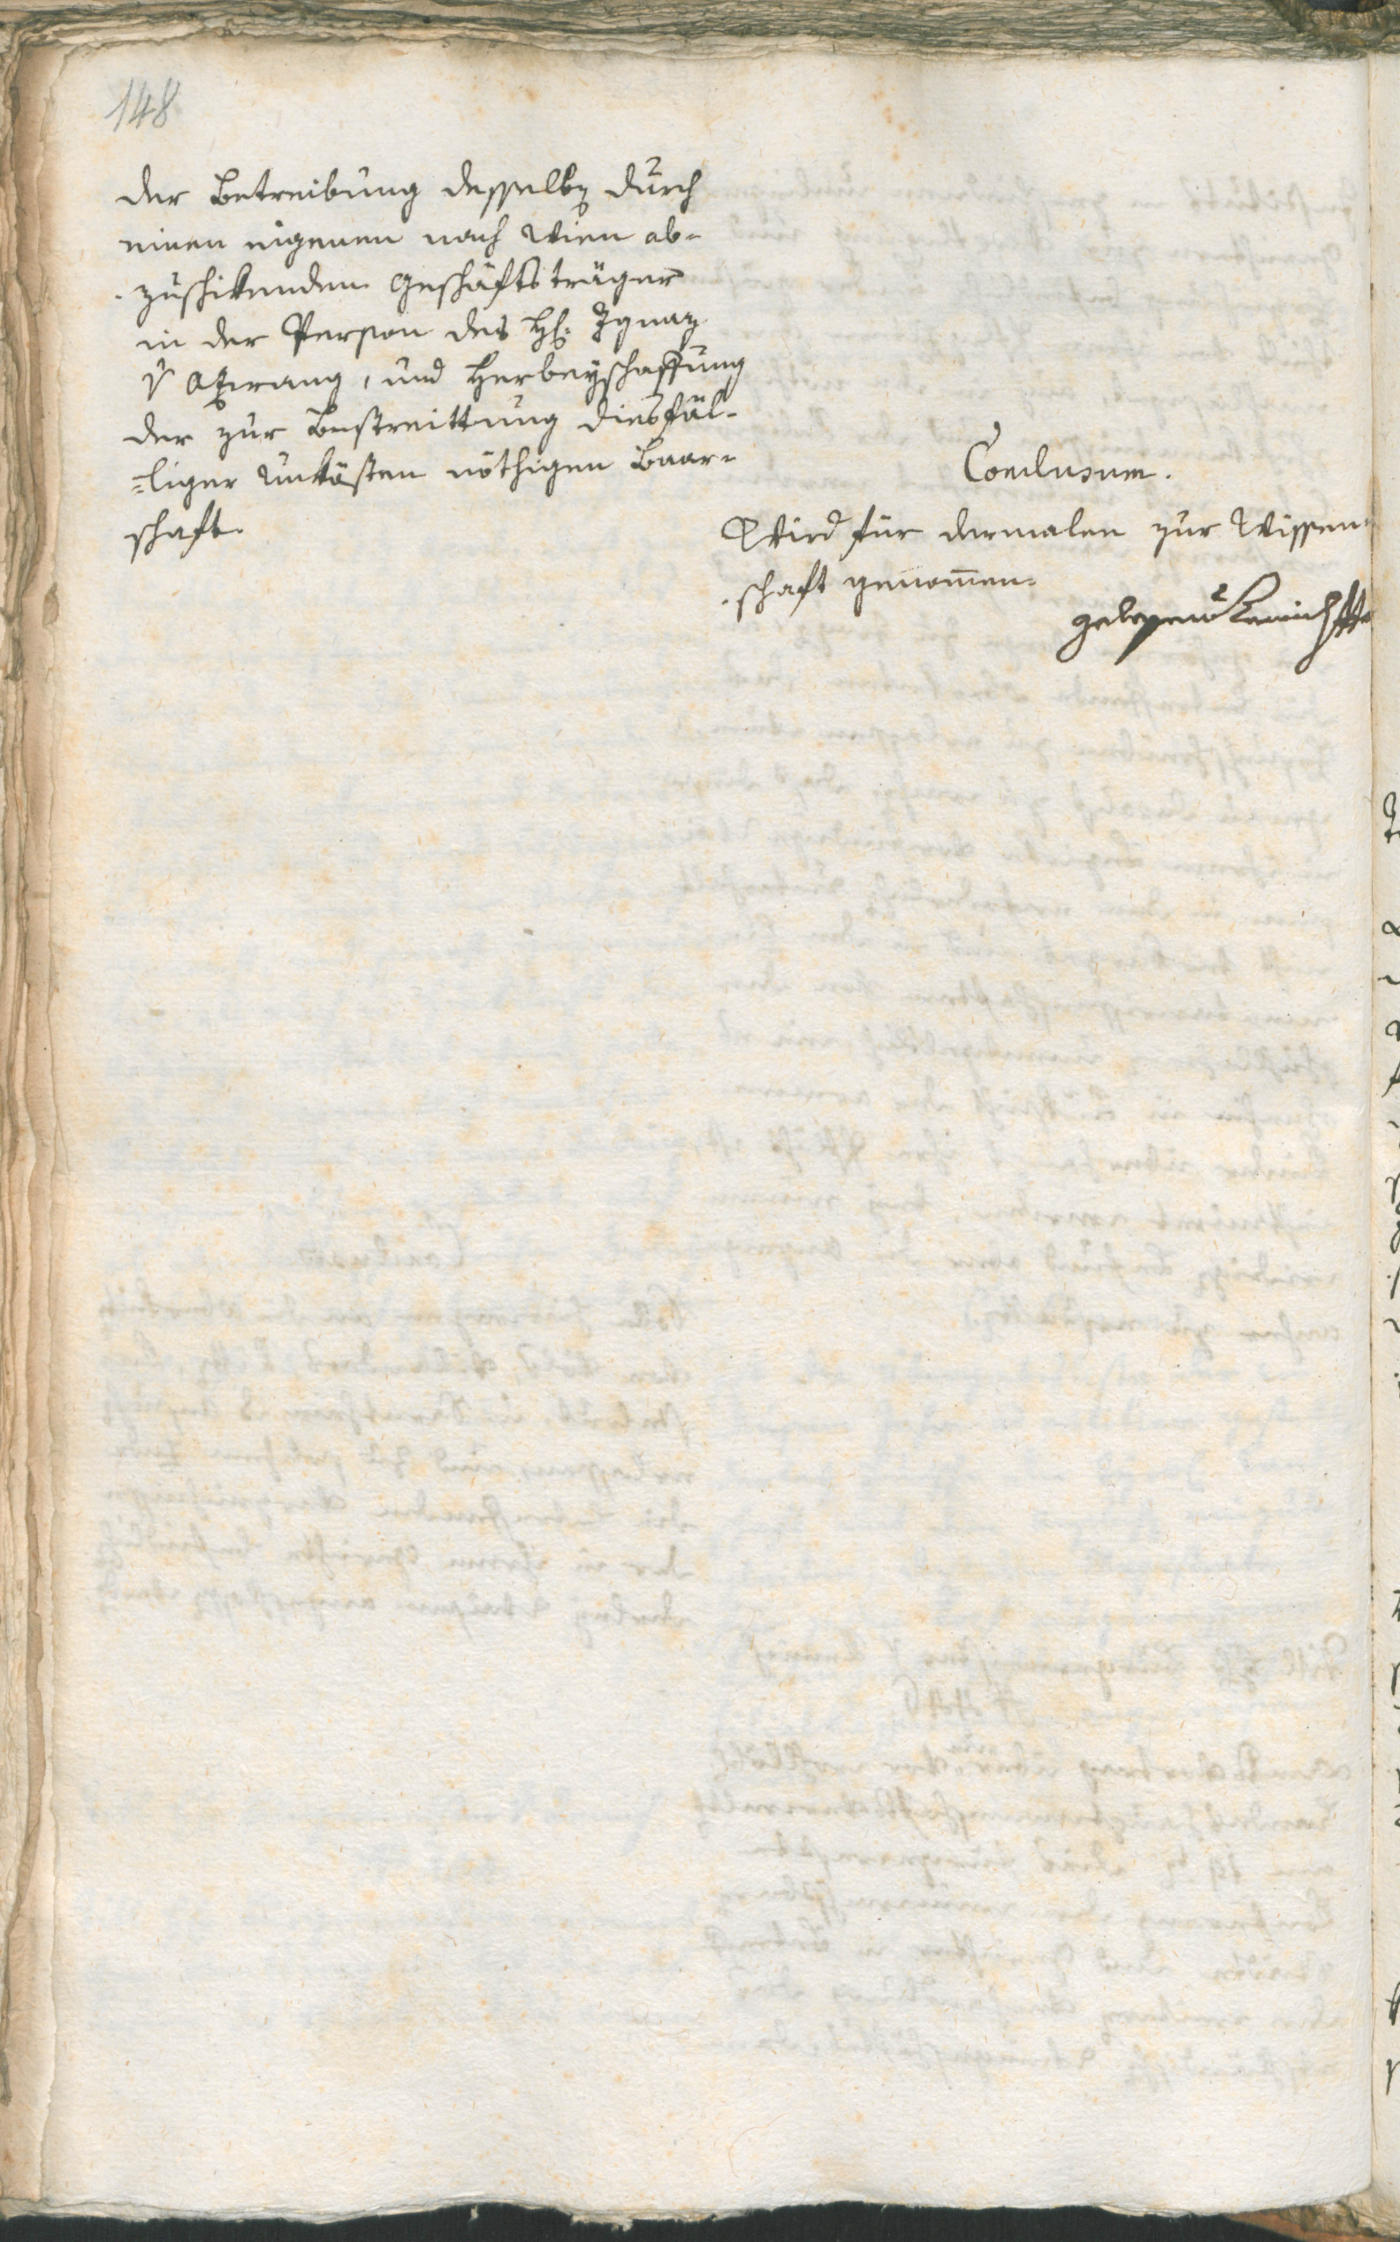 148
der Betreibung desselben durch
einen eigenen nach Wien ab-
zuschikenden Geschäftsträger
in der Person des H: Ignaz
v Atzwang, und Herbeyschaffung
der zur Bestreittung diesfäl-
=liger Unkösten nöthigen Baar-
schaft.
Conclusum.
Wird für dermalen zur Wissen-
schaft genom̅en.
gelesen